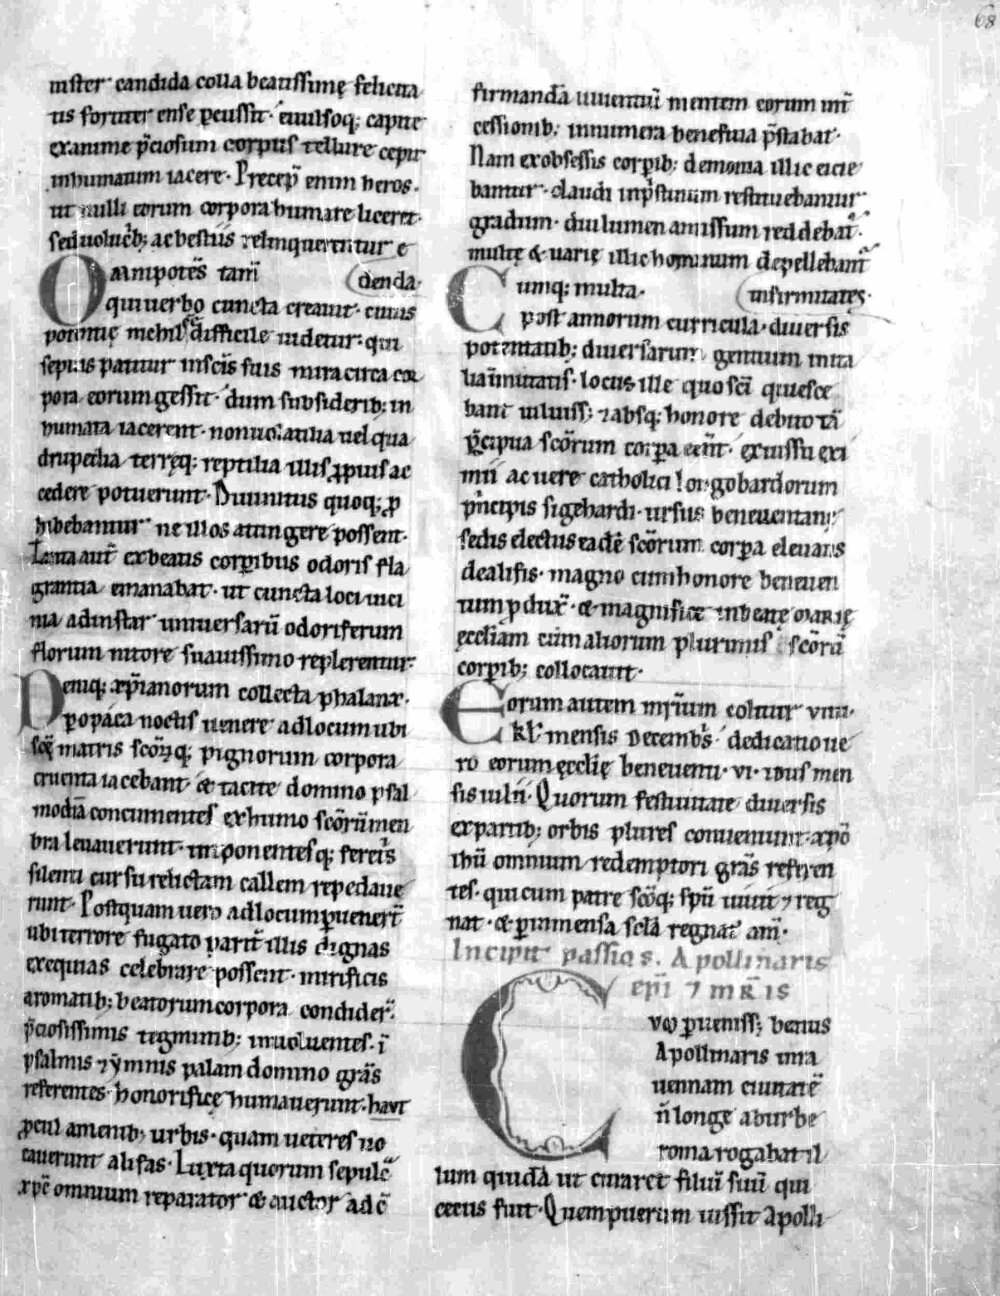 68
nister candida colla beatissimę felicita
tis fortiter ense pcussit. euulsoq; capite
exanime p̄ciosum corpus tellure cepit
inhumatum iacere. Precep̄ enim heros.
ut nulli eorum corpora humare liceret.
sed uolucb; ac bestiis relinquerentur e
denda.
Omnipotēs tam̄
qui uerbo cuncta creauit. cuius
potentię nichil difficile uidetur. qui
sepius patitur in scīs suis mira circa cor
pora eorum gessit. dum sub siderib; in
humata iacerent. non uolatilia uel qua
drupedia terręq; reptilia illis ꝓpius ac
cedere potuerunt. Diuinitus quoq; ꝓ
hibebantur ne illos attingere possent.
Tanta aut̄ ex beatis corꝑibus odoris fla
grantia emanabat. ut cuncta loci uici
nia ad instar uniuersarū odoriferum
florum nitore suauissimo replerentur.
Deniq; xp̄ianorum collecta phalanx.
p opaca noctis uenere ad locum ubi
scę̄ matris scōrq; pignorum corpora
cruenta iacebant. & tacite domino psal
modiā concinnentes ex humo scōrū mem
bra leuauerunt. imponentesq; feret̄s
silenti cursu relictam callem repedaue
runt. Postquam uero ad locum puenert̄
ubi terrore fugato parit̄ illis dignas
exequias celebrare possent. mirificis
aromatib; beatorum corpora condider̄.
p̄ciosissimis tegminib; inuoluentes. ī
psalmis ⁊ ymnis palam domino grās
referentes. honorificę humauerunt. haut
ꝓcul amenib; urbis. quam ueteres uo
cauerunt alifas. Iuxta quorum sepulc̄
xp̄c omnium reparator & auctor ad c̄
firmandā uiuentiū mentem eorum int̄
cessionib; innumera beneficia p̄stabat.
Nam ex obsessis corꝑib; demonia illic eicie
bantur. claudi in p̄stinum restituebantur
gradum. diu lumen amissum reddebat̄.
multę & uarię illic hominum depellebant̄
infirmitates.
Cumq; multa.
post annorum curricula. diuersis
potentatib; diuersarum gentium inita
lia inmitatis. locus ille quo scī quiesce
bant uiluiss; ⁊ absq; honore debito tā
p̄cipua scōrum corꝑa eēnt. ex iussu exi
mii ac uere catholici longobardorum
p̄ncipis sigehardi. ursus beneuentani
sedis electus eadē scōrum corꝑa eleuans
de alifis. magno cum honore beneuen
tum pdux̄. & magnifice in beatę MARIĘ
ęccliam cum aliorum plurimis scōrū
corꝑib; collocauit.
Eorum autem mr̄ium colitur VIIII.
kƚ. mensis decemb̄s. dedicatio ue
ro eorum ęcclię beneuenti. VI. idus men
sis iulii. Quorum festiuitate diuersis
ex partib; orbis plures conueniunt. xp̄o
ihū omnium redemptori grās referen
tes. qui cum patre scōq; spū uiuit ⁊ reg
nat. & p immensa sc̄la regnat̄ am̄.
Incipit passio s. Apollinaris
epī ⁊ mr̄is
Cvo peruniss; beatus
Apollinaris in ra
uennam ciuitatē
n̄ longe ab urbe
roma rogabat il
lum quidā ut curaret filiū suū qui
cecus fuit. Quem puerum iussit Apolli